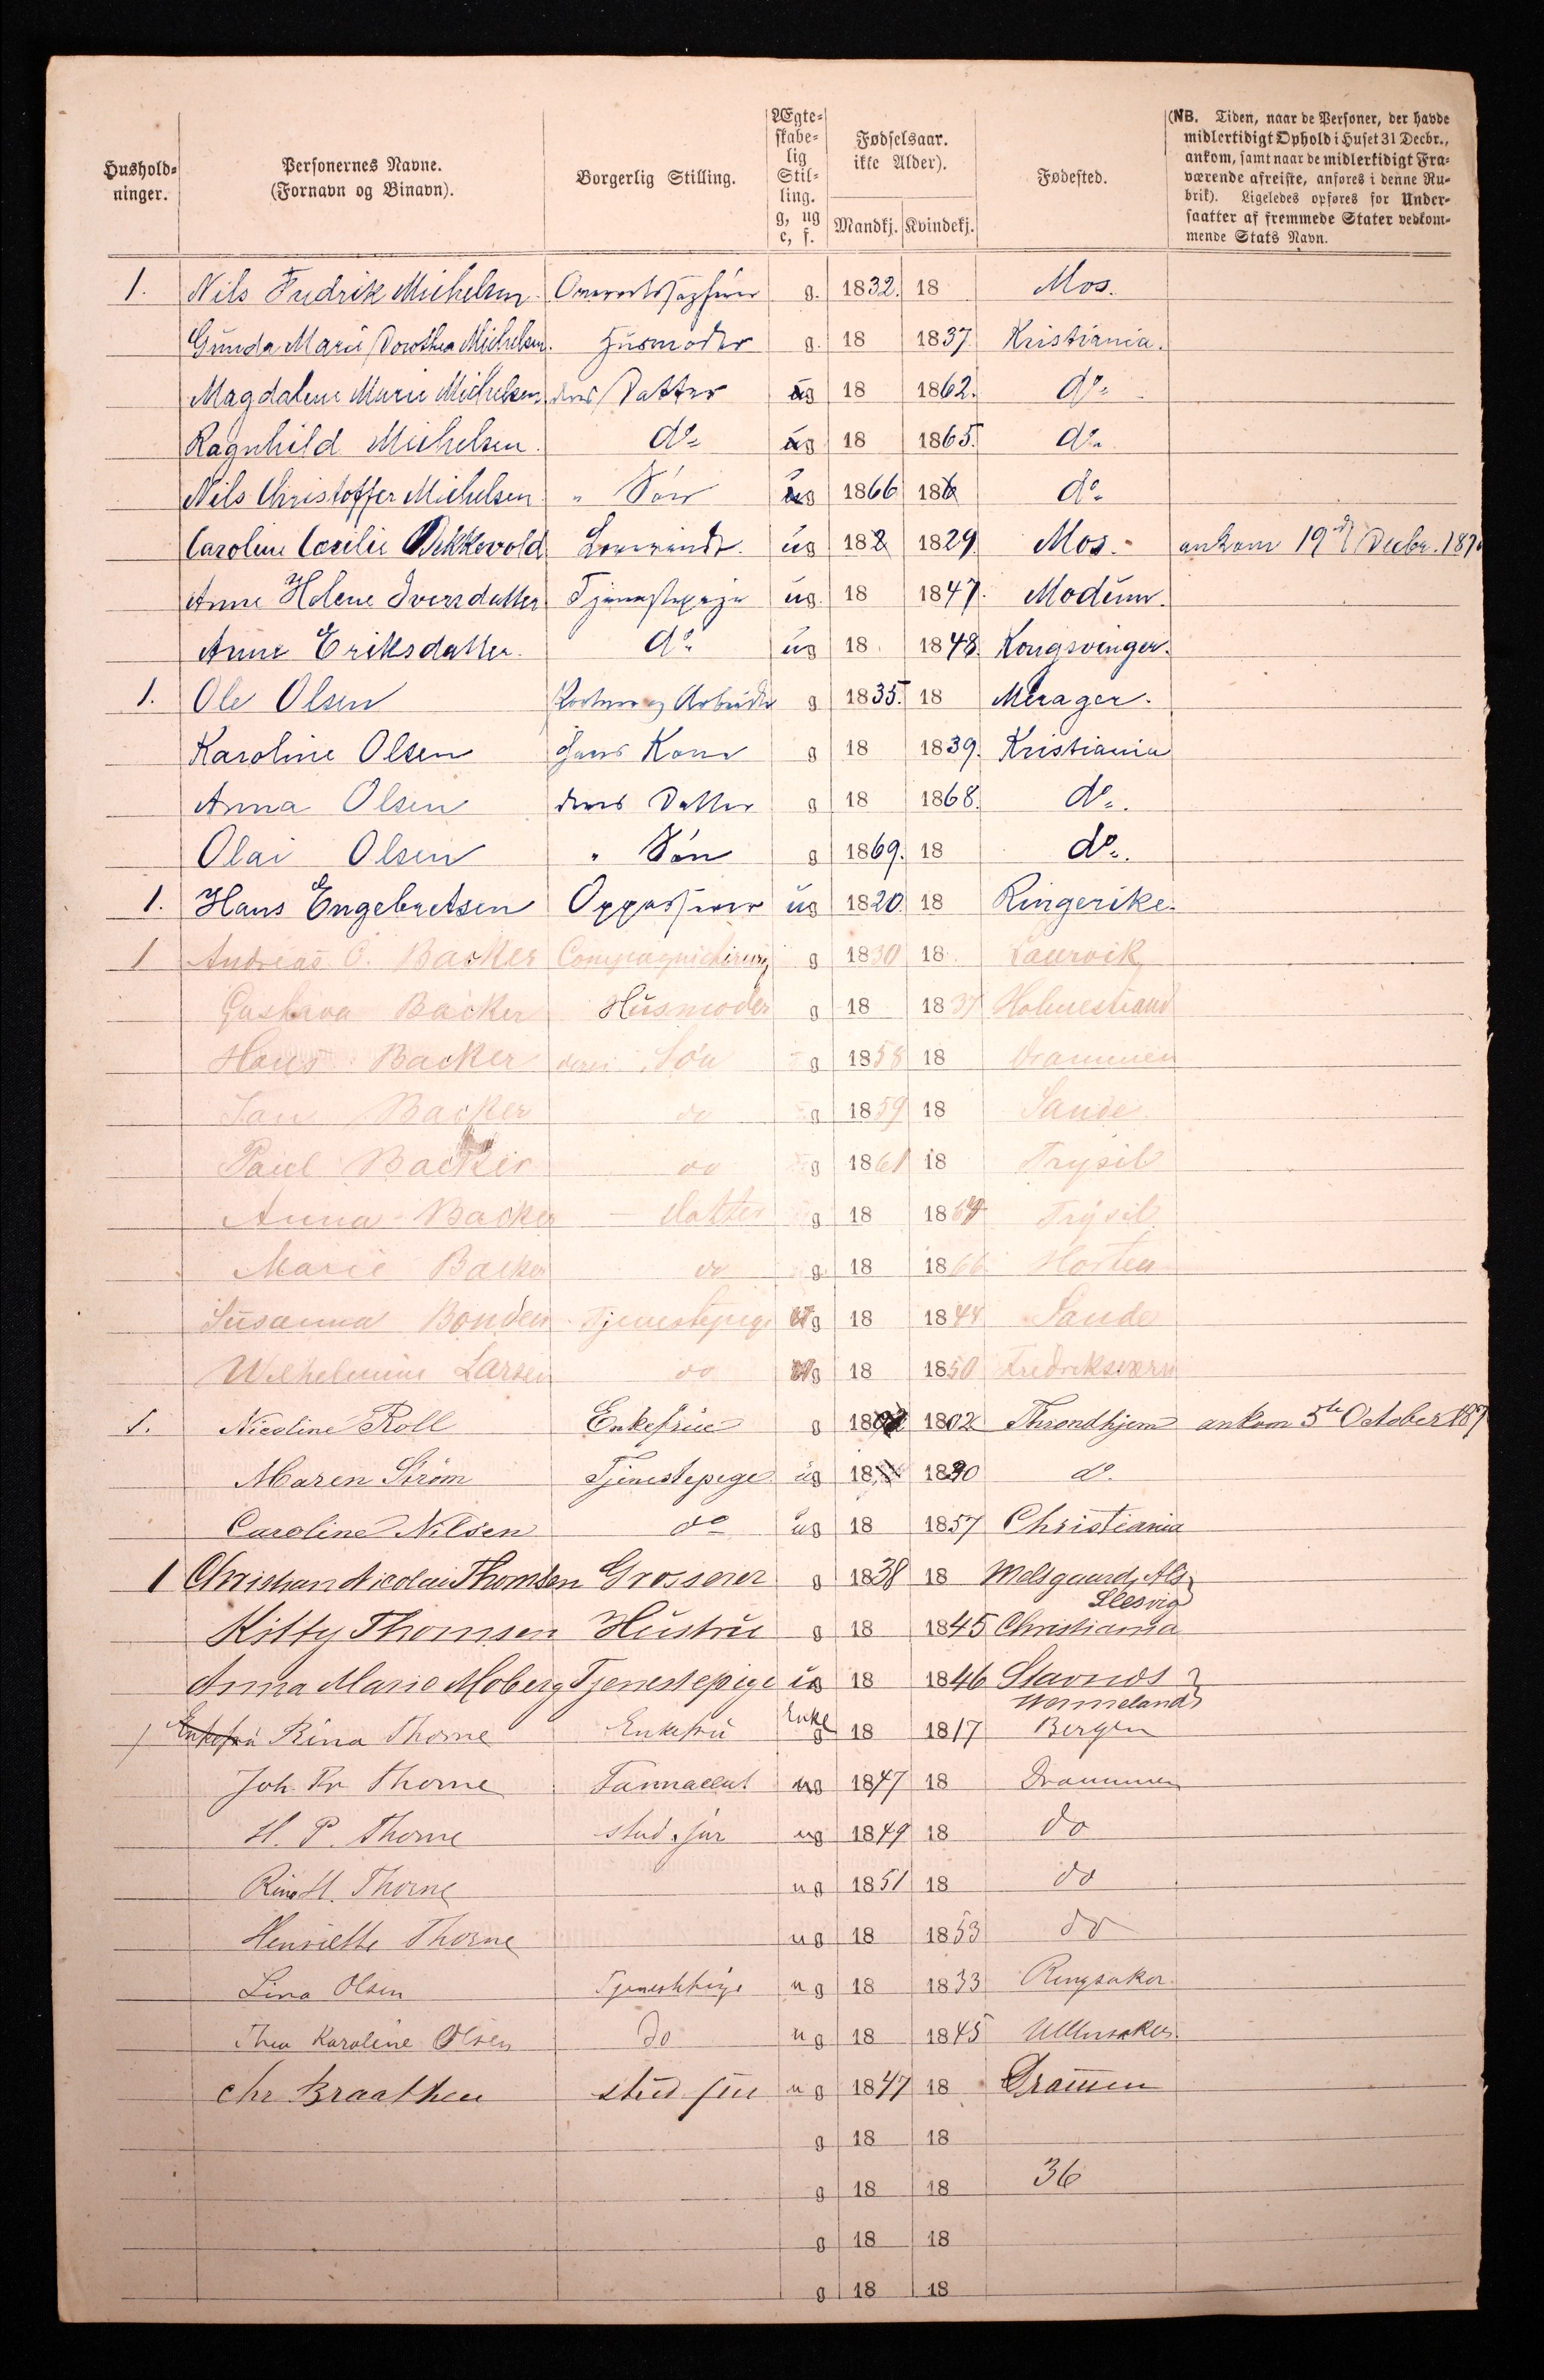 Hushold-
ninger.
Personernes Navne.
(Fornavn og Binavn).
Borgerlig Stilling.
Ægte-
skabe-
lig
Stil-
ling.
g, ug
e, f.
Fødselsaar.
ikke Alder).
Mandkj. Kvindekj.
Fødested.
(NB. Tiden, naar de Personer, der havde
midlertidigt Ophold i Huset 31 Decbr.,
ankom, samt naar de midlertidigt Fra-
værende afreiste, anføres i denne Ru-
brik). Ligeledes opføres for Under-
saatter af fremmede Stater vedkom-
mende Stats Navn.
1. Nils Fredrik Michelsen g. 1832. 18 Mos.
Gunda Marie Dorothea Michelsen. Husmoder g. 18 1837. Kristiania.
Magdalene Marie Michelsen deres Datter ug 18 1862. do
Ragnhild Michelsen. do ug 18 1865. do
Nils Christoffer Michelsen " Søn ug 1866 18 do
Caroline Cecilie Bekkevold ug 18 1829 Mos. ankom 19de Decbr. 1870
Anne Helene Iversdatter Tjenestepige ug. 18 1847. Modum.
Anne Eriksdatter. do ug 18 1848. Kongsvinger.
1. Ole Olsen Arbeider g 1835. 18 Merager.
Karoline Olsen Hans Kone g 18 1839. Kristiania
Anna Olsen deres Datter g 18 1868. do.
Olai Olsen " Søn g 1869. 18 do.
1. Hans Engebretsen Oppasser ug 1820 18 Ringerike.
1 Andreas C. Backer Compagnichirurg g 1830 18 Laurvik
Gustava Backer Husmoder g 18 1837 Holmestrand
Hans Backer deres Søn g 1858 18 Drammen
Jan Backer do g 1859 18 Sande
Paul Backer do g 1861 18 Trysil
Anna Backer — Datter g 18 1864 Trysil
Marie Backer do g 18 1866 Horten
Susanna Bonden Tjenestepige Ug 18 1844 Sande
Wilhelmine Larsen do Ug 18 1850 Fredriksværn
1. Nicoline Roll Enkefrue g 18 1802 Throndhjem ankom 5te October 187
Maren Strøm Tjenestepige ug 18 1830 do.
Caroline Nilsen do ug 18 1857 Christiania
1 Christian Nicolai Thomsen Grosserer g 1838 18 Melsgaard, Als
Slesvig
Kitty Thomsen Hustru g 18 1845 Christiania
Anna Marie Moberg Tjenestepige ug 18 1846 Stavnæs
Wermeland
1 Enkefru Rina Thorne Enkefru Enke g 18 1817 Bergen
Joh. Kr Thorne ug 1847 18 Drammen
H. P. Thorne stud. jur ug 1849 18 do
Ring H. Thorne ug 1851 18 do
Henriette Thorne ug 18 1853 do
Lina Olsen Tjenestepige ug 18 1833 Ringsaker
Thea Karoline Olsen Do ug 18 1845 Ullensaker
Chr Braathen stud jur ug 1847 18 Drammen
g 18 18
g 18 18 36
g 18 18
g 18 18